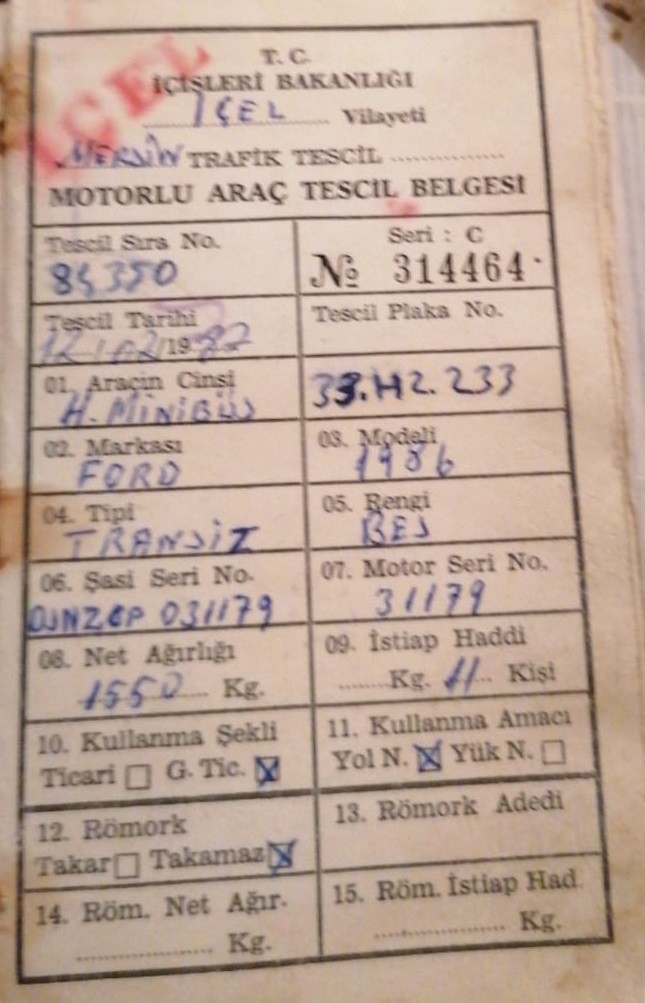 İÇEL
T. C.
İÇİŞLERİ BAKANLIĞI
İÇEL Vilayeti
MERSİN TRAFİK TESCİL
MOTORLU ARAÇ TESCİL BELGESİ
Tescil Sıra No.
Seri : C
№ 314464
Tescil Tarihi
12/02/19
Tescil Plaka No.
33.HZ.233
01. Araçin Cinsi
H. MİNİBÜS
02. Markası
FORD
03. Modeli
1986
04. Tipi
TRANSİT
05. Rengi
BEJ
06. Şasi Seri No.
031179
07. Motor Seri No.
31179
08. Net Ağırlığı
1550 Kg.
09. İstiap Haddi
Kg. 11 Kişi
10. Kullanma Şekli
Ticari ☐ G. Tic. ☒
11. Kullanma Amacı
Yol N. ☒ Yük N. ☐
12. Römork
Takar ☐ Takamaz ☒
13. Römork Adedi
14. Röm. Net Ağır.
Kg.
15. Röm. İstiap Had.
Kg.